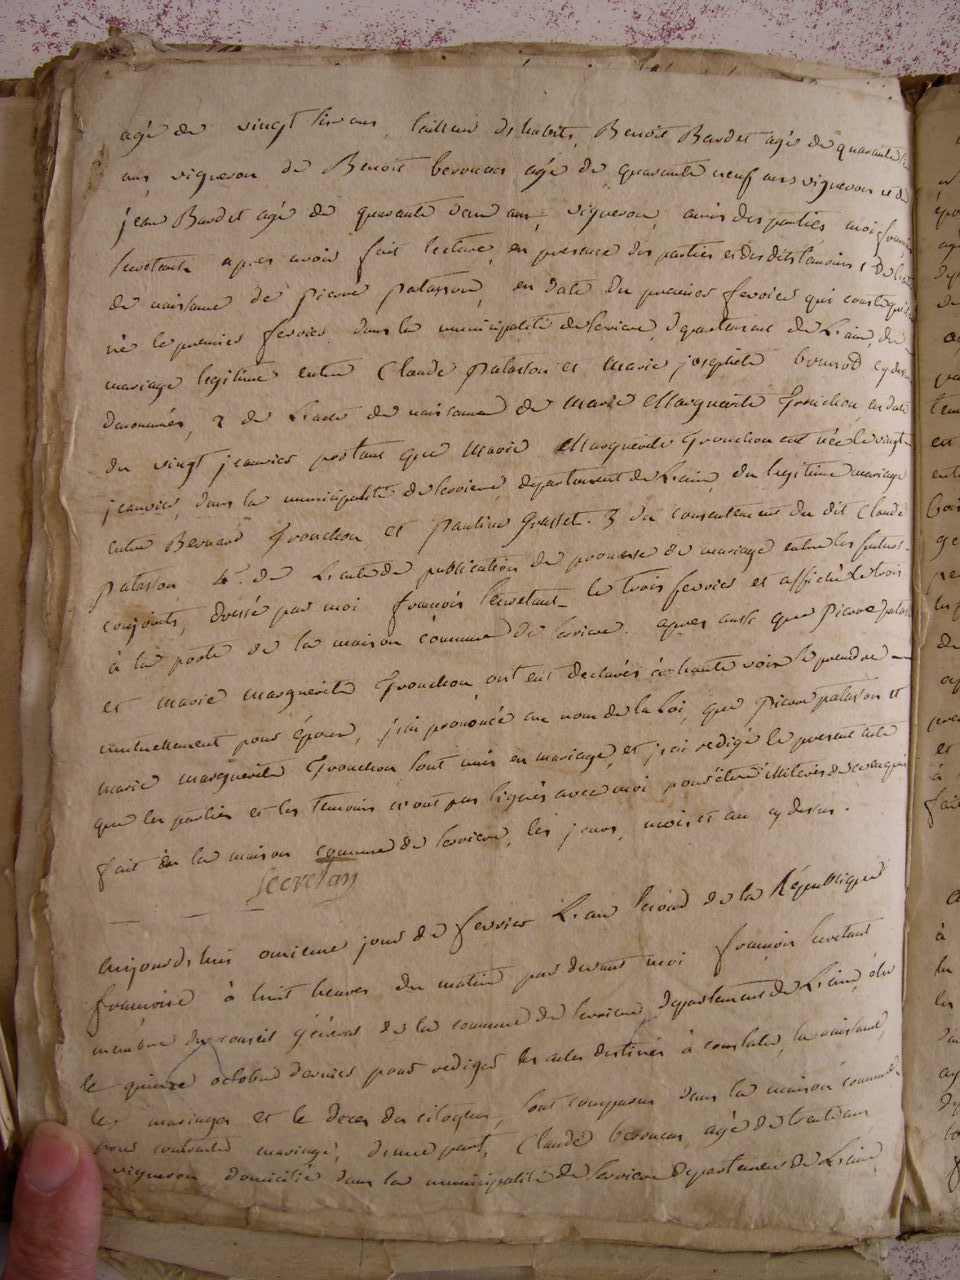 agé de vingt six ans, tailleur d'habits, Benoit Bardet agé de quarante
ans, vigneron de Benoit beroucas agé de quarante neuf ans vigneron et de
jean Bardet agé de quarante deux ans, vigneron, amis des parties, moi
Secretant apres avoir fait lecture, en presence des parties et des dits temoins 1° de l'acte
de naissance de pierre palasson, en date du premier fevrier qui constate qu'il
né le premier fevrier dans la municipalité de, departement de L'ain, du
mariage legitime entre Claude palasson et Marie josephte
denommés, 2 de L'acte de naissance de Marie Marguerite Grouchon en date
du vingt janvier portant que Marie Marguerite Grouchon est née le vingt
janvier, dans la municipalité de, departement de L'ain, du legitime mariage
entre Bernard Grouchon et pauline Grasset. 3 du consentement du dit Claude
palasson 4.° de L'acte de publication de promesse de mariage entre les futurs
conjoints, dressé par moi françois Secretant le trois fevrier et affiché le trois
à la porte de la maison commune de. apres aussi que pierre palasson
et marie marguerite Grouchon ont eut declarés à haute voix se prendre
mutuellement pour époux, j'ai prononcé au nom de la Loi, que pierre palasson et
marie marguerite Grouchon sont unis en mariage, et j'ai redigé le present acte
que les parties et les temoins n'ont pas signés avec moi pour être illiterés de ce enquis
fait en la maison commune de, les jour, mois et an ci dessus.
Secretan
aujourd'hui onzieme jour de fevrier L'an second de la République
françoise à huit heures du matin par devant moi françois Secretant
membre du conseil général de la commune de departement de L'ain, élu
le quinze octobre dernier pour rediger les actes destinés à constater, la naissance,
les mariages et le deces des citoyens, sont comparus dans la maison commune
pour contracter mariage, d'une part, Claude beroucas, agé de trente ans
vigneron domicilié dans la municipalité de departement de L'ain,